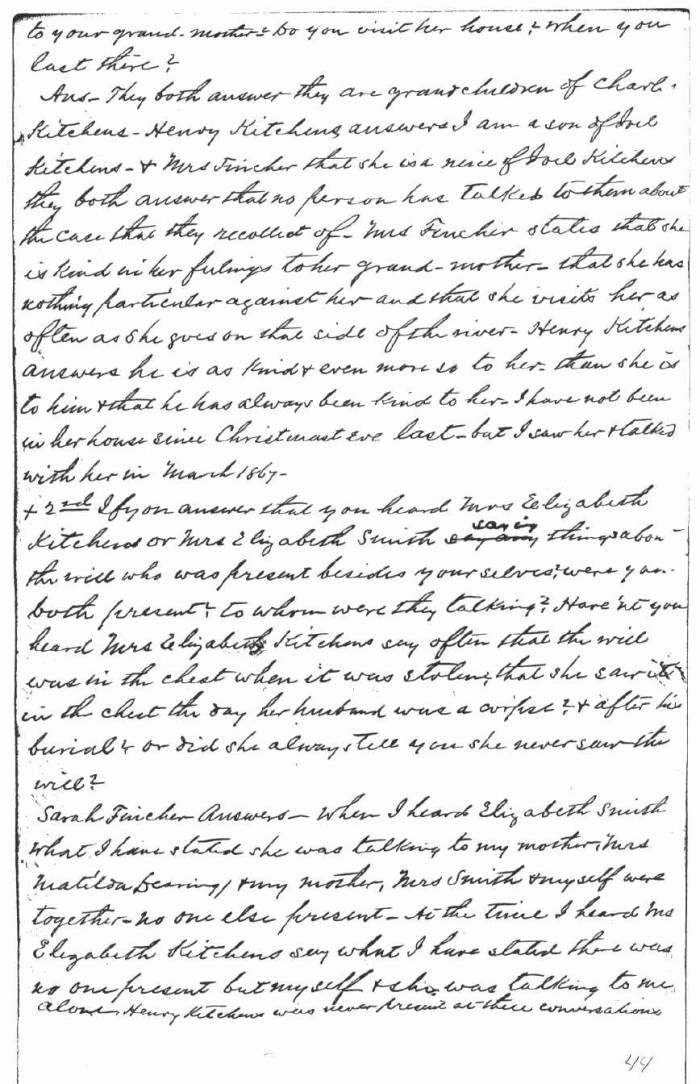 to your grand-mother? Do you visit her house? When you
last there?
Ans- They both answer they are grandchildren of Charl.
Kitchens- Henry Kitchens answers I am a son of Joel
Kitchens- & Mrs Fincher that she is a neice of Joel Kitchens
they both answer that no person has talked to them about
the case that they recollect of- Mrs Fincher states that she
is kind in her feelings to her grand-mother- that she has
nothing particular against her and that she visits her as
often as she goes on that side of the river- Henry Kitchens
answers he is as kind & even more so to her- than she is
to him & that he has always been kind to her- I have not been
in her house since Christmast Eve last- but I saw her & talked
with her in March 1867-
+ 2nd If you answer that you heard Mrs Elizabeth
Kitchens or Mrs Elizabeth Smith saying things abou
the will who was present besides yourselves? were you
both present? to whom were they talking? Have'nt you
heard Mrs Elizabeth Kitchens say often that the will
was in the chest when it was stolen, that she saw it
in the chest the day her husband was a corpse? & after his
burial? or did she always tell you she never saw the
will?
Sarah Fincher Answers- When I heard Elizabeth Smith
what I have stated she was talking to my mother, Mrs
Matilda Dearing, & my mother, Mrs Smith & myself were
together- no one else present- At the time I heard Mrs
Elizabeth Kitchens say what I have stated there was
no one present but myself & she was talking to me
alone. Henry Kitchens was never present at these conversations
44